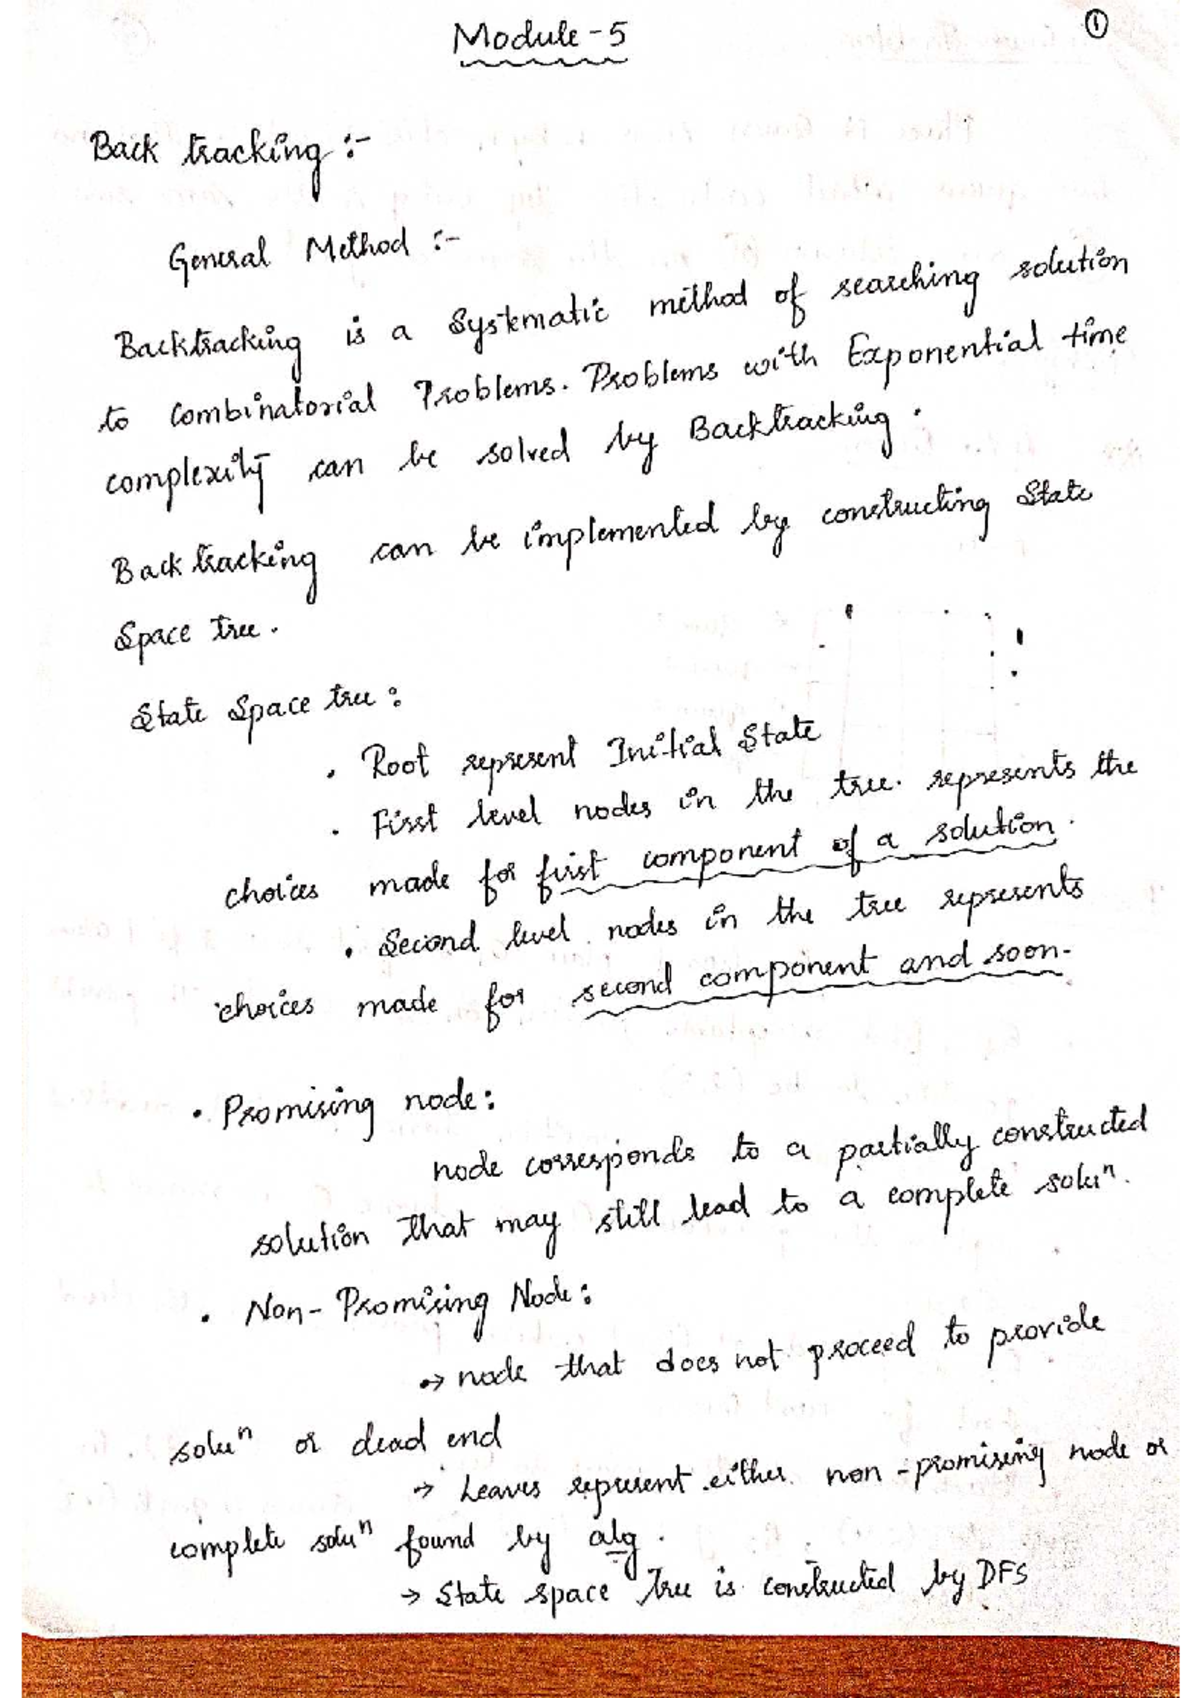 Module-5
1
Back tracking :-
General Method :-
Backtracking is a Systematic method of searching solution
to Combinatorial Problems. Problems with Exponential time
complexity can be solved by Backtracking.
Back tracking can be implemented by constructing State
Space tree.
State Space tree :
. Root represent Initial State
. First level nodes in the tree represents the
choices made for first component of a solution.
. Second level nodes in the tree represents
choices made for second component and soon-
. Promising node :
node corresponds to a partially constructed
solution that may still lead to a complete soluⁿ.
. Non-Promising Node :
→ node that does not proceed to provide
soluⁿ or dead end
→ Leaves represent either non-promising node or
complete soluⁿ found by alg.
→ State space Tree is constructed by DFS